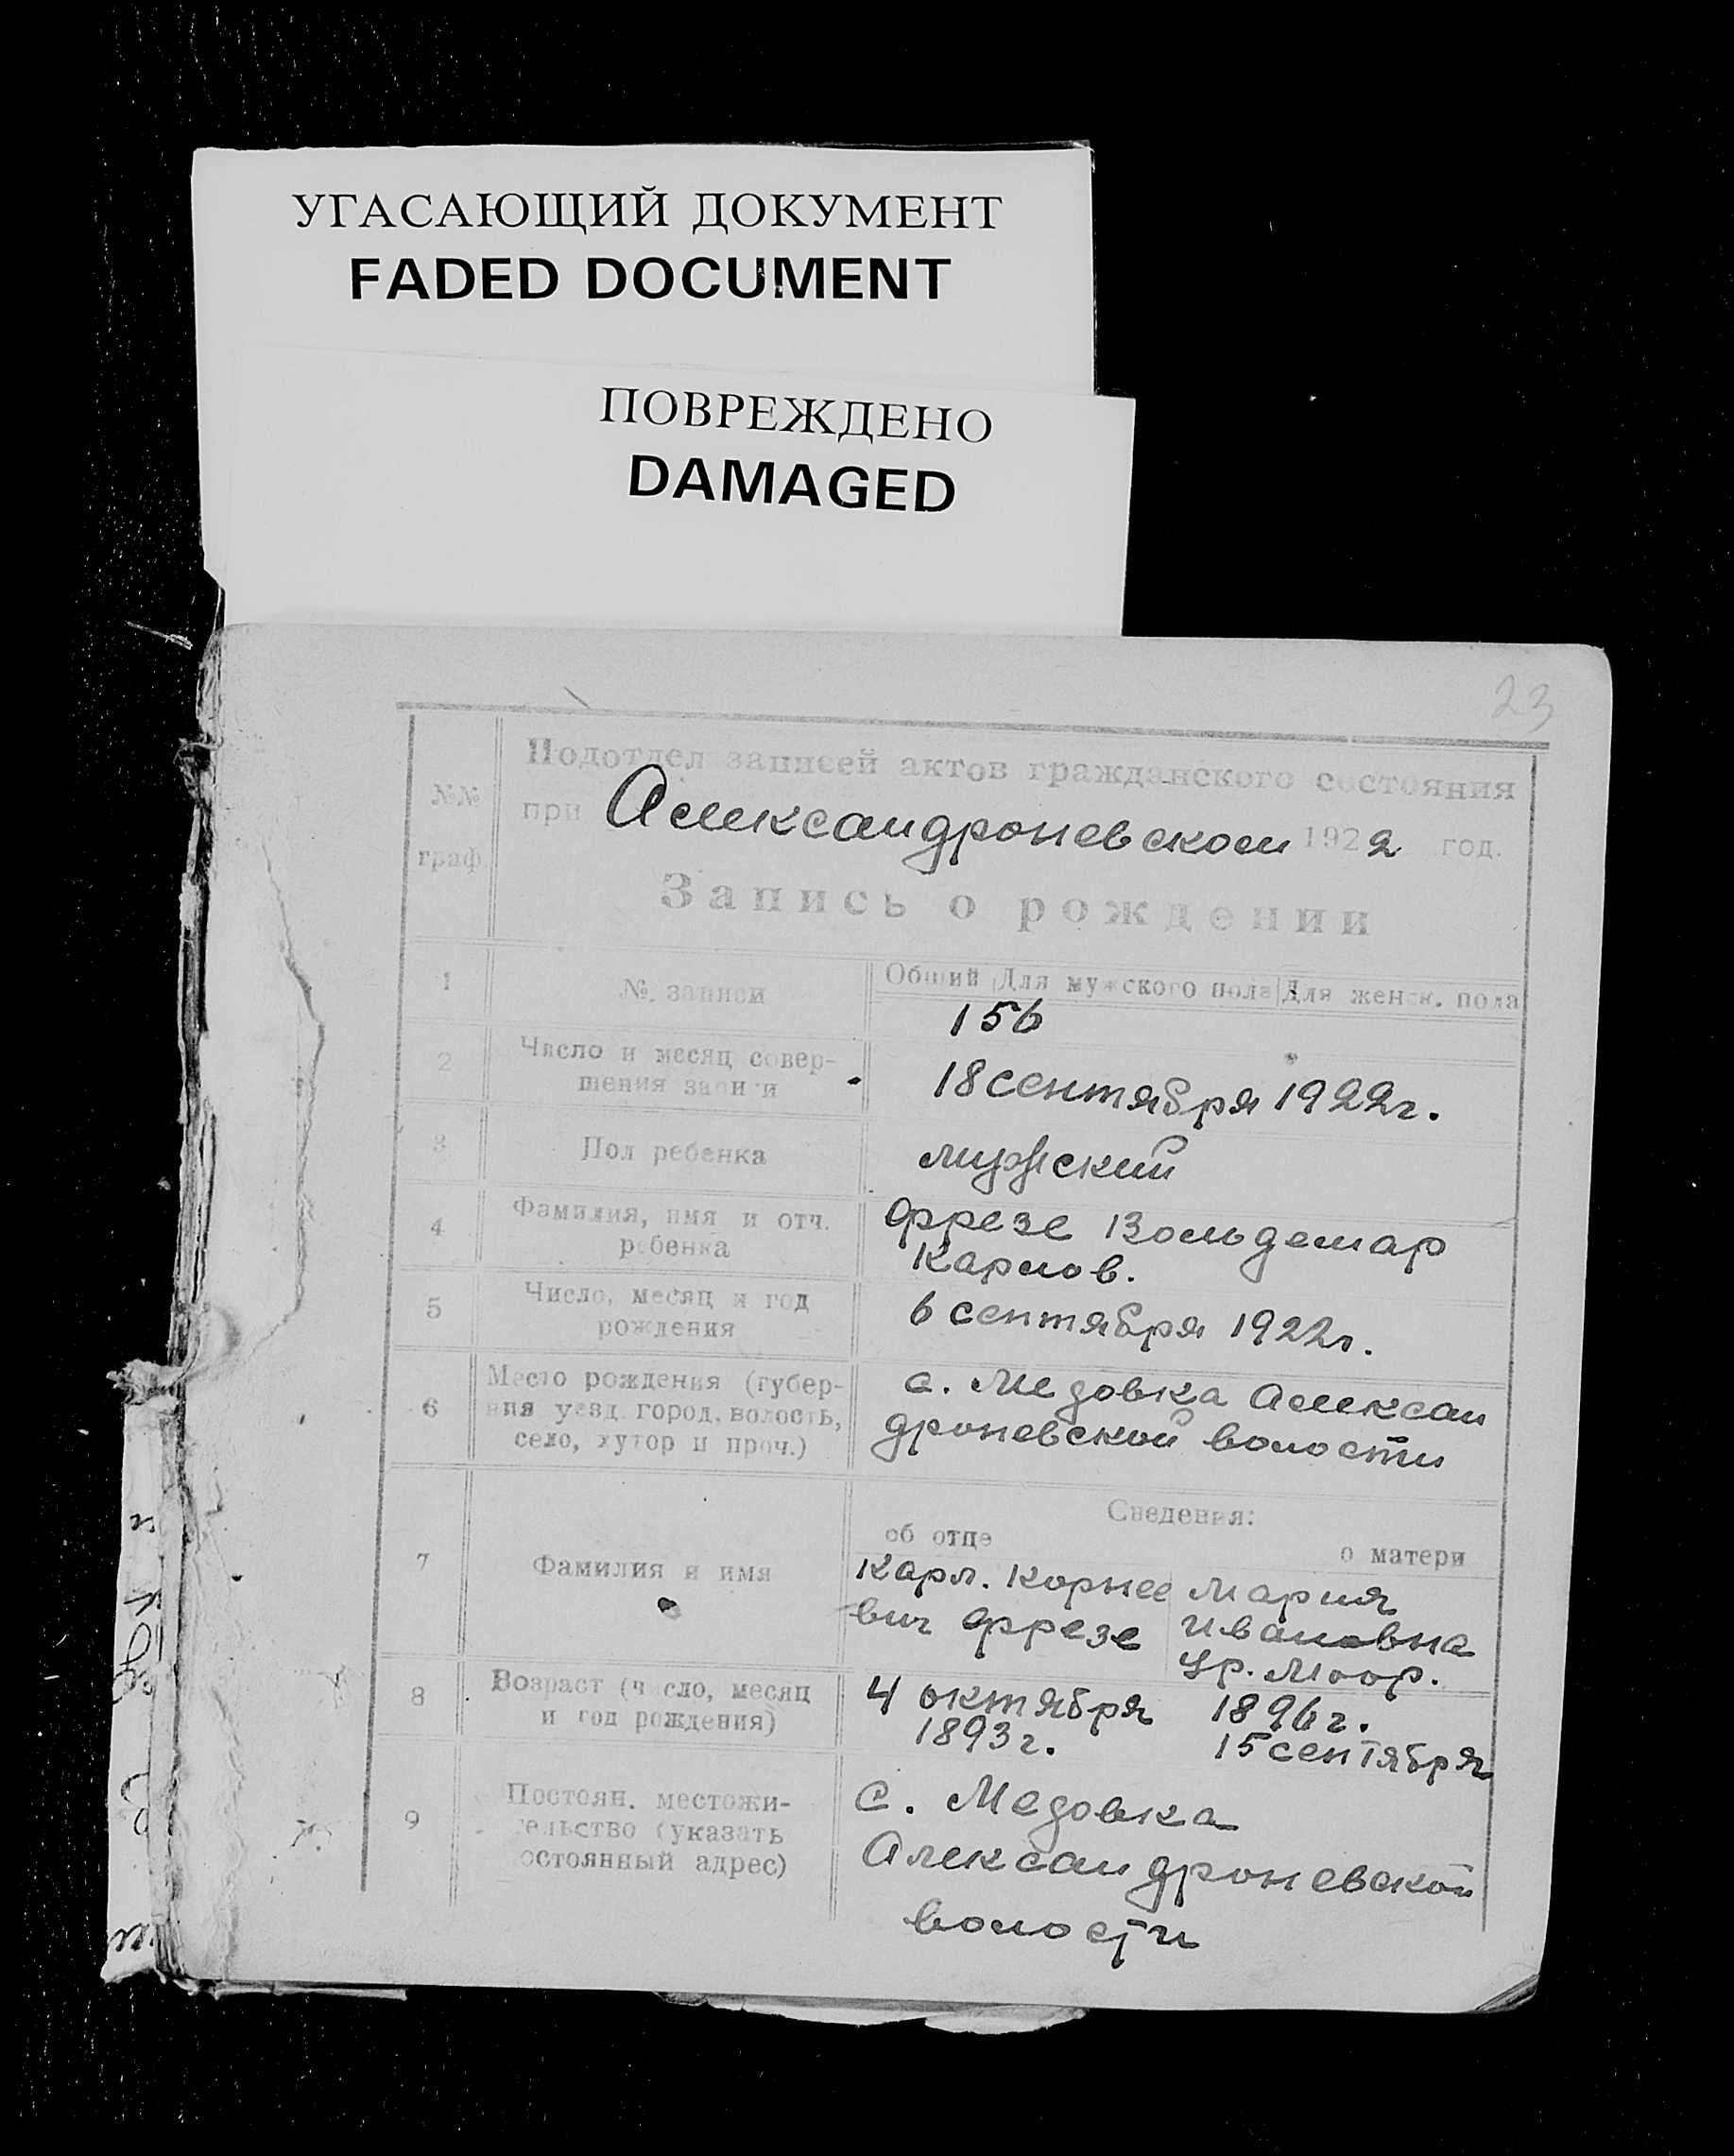 УГАСАЮЩИЙ ДОКУМЕНТ
FADED DOCUMENT
ПОВРЕЖДЕНО
DAMAGED
23
№№ граф.
Подотдел записей актов гражданского состояния
при Александроневском 1922 год.
Запись о рождении
1 №. записи Общий Для мужского пола Для женск. пола
156
2 Число и месяц совер-
шения записи
18 сентября 1922 г.
3 Пол ребенка мужский
4 Фамилия, имя и отч.
ребенка
Фрезе Вольдемар
Карлов.
5 Число, месяц и год
рождения
6 сентября 1922 г.
6 Место рождения (губер-
ния уезд город, волость,
село, хутор и проч.)
с. Медовка Алексан
дроневской волости
Сведения:
об отце о матери
7 Фамилия и имя
Карл. Корнее
вич Фрезе
Мария
Ивановна
ур. Моор.
8 Возраст (число, месяц
и год рождения)
4 октября
1893 г.
1896 г.
15 сентября
9 Постоян. местожи-
тельство (указать
остоянный адрес)
С. Медовка
Александроневской
волости